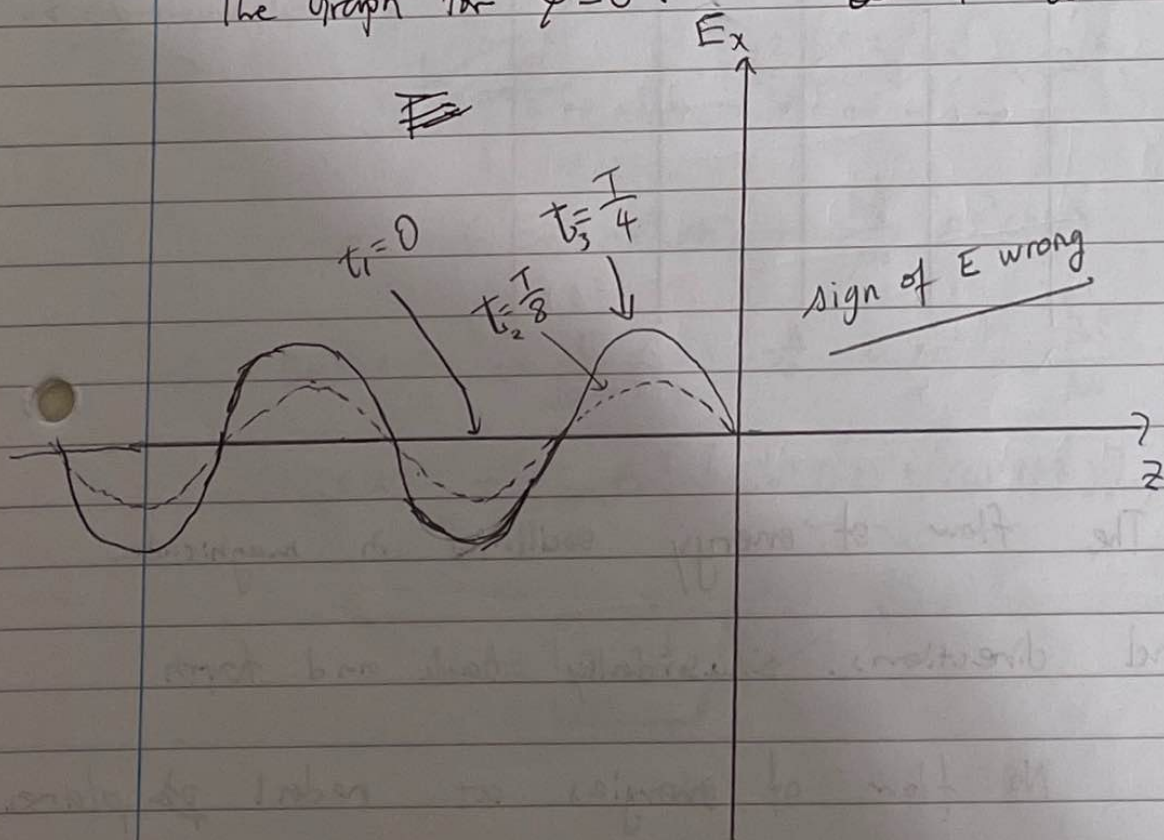 The graph for
E_x
t_3 = T/4
t_1 = 0
t_2 = T/8
sign of E wrong
z